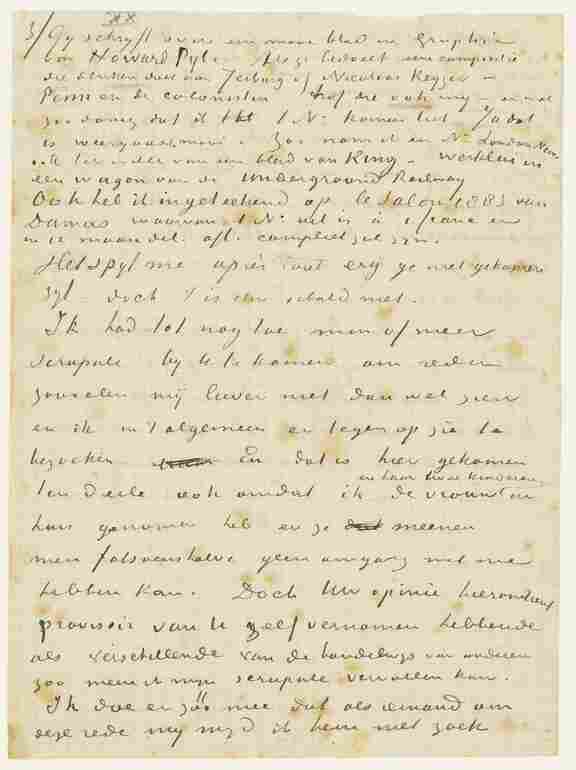 3/ Gy schryft over een mooi blad in Graphic
van Howard Pyle. Als ge bedoelt een compositie
die denken doet aan Terburg of Nicolaas Keyzer –
Penn en de colonisten trof die ook my – en wel
zoo danig dat ik het No komen liet. Ja dat
is weergaasch mooi. Zoo nam ik een No London News
om de wille van een blad van King – werklui in
een wagon van de Underground Railway
Ook heb ik ingeteekend op le Salon 1883 van
Dumas waarvan 1 No uit is à 1 franc en
in 12 maandel. afl. compleet zal zyn.
Het spyt me après tout erg ge niet gekomen
zyt – doch 't is uw schuld niet.
Ik had tot nog toe min of meer
scrupule by U te komen om reden
sommigen mij liever niet dan wel zien
en ik in 't algemeen er tegen op zie te
bezoeken En dat is hier gekomen
en haar twee kinderen
ten deele ook omdat ik de vrouw in
huis genomen heb en ze meenen
men fatsoenshalve geen omgang met me
hebben kan. Doch Uw opinie hieromtrent
provisoir van U zelf vernomen hebbende
als verschillende van de handelwijs van anderen
zoo meen ik mijn scrupule vervallen kan.
Ik doe er zóó mee dat als iemand om
deze rede my myd ik hem niet zoek